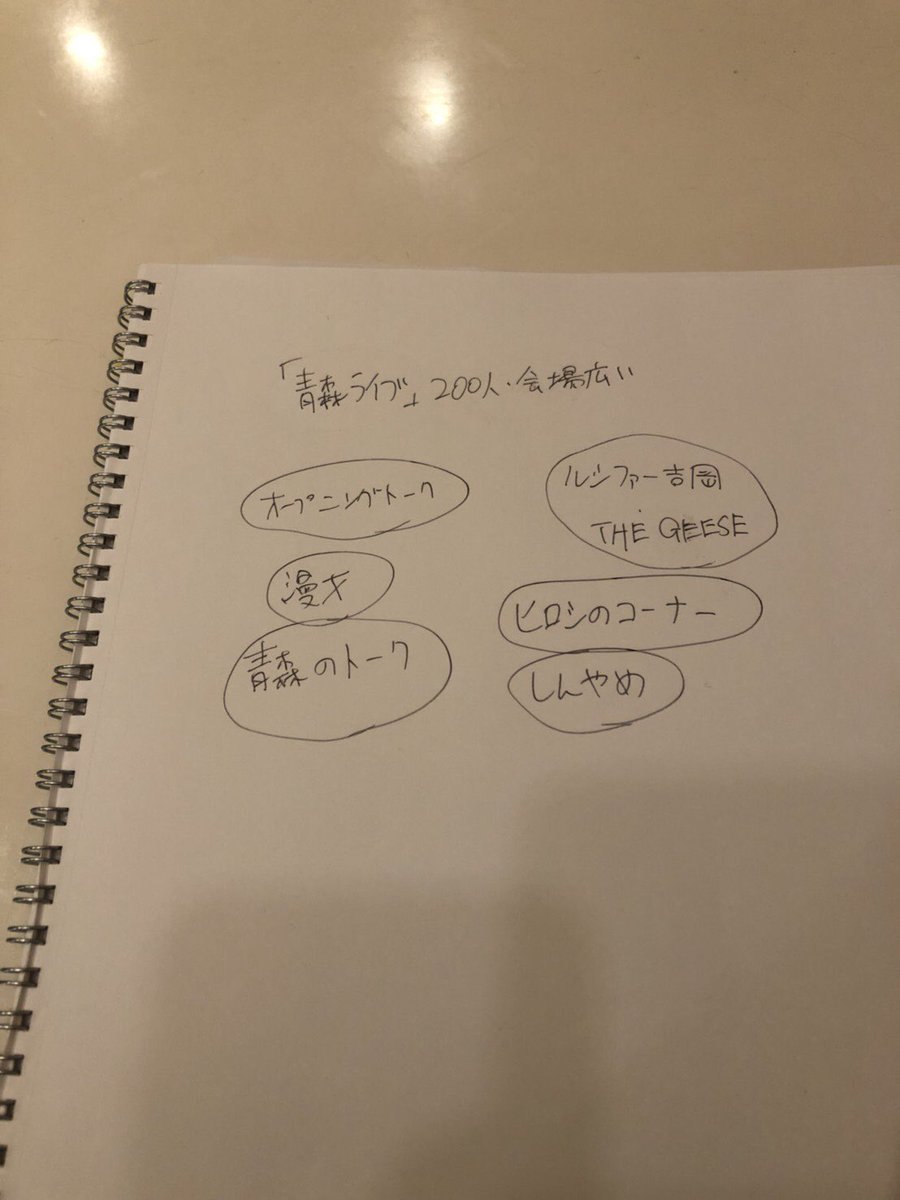 「青森ライブ」200人・会場広い
オープニングトーク
漫才
青森のトーク
ルシファー吉岡
THE GEESE
ヒロシのコーナー
しんやめ